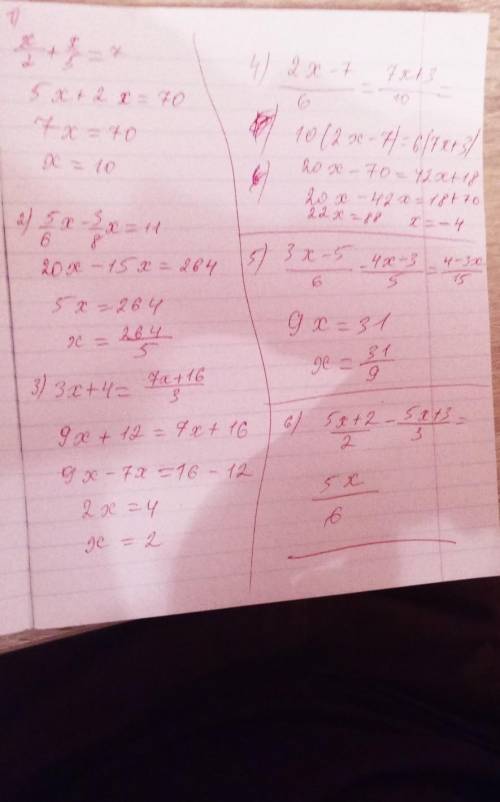 1)
x/2 + x/5 = 7
5x + 2x = 70
7x = 70
x = 10
2) 5/6 x - 3/8 x = 11
20x - 15x = 264
5x = 264
x = 264/5
3) 3x + 4 = 7x+16/3
9x + 12 = 7x + 16
9x - 7x = 16 - 12
2x = 4
x = 2
4) 2x-7/6 = 7x+3/10 =
10(2x-7) = 6(7x+3)
20x - 70 = 42x + 18
20x - 42x = 18 + 70
22x = 88 x = -4
5) 3x-5/6 - 4x-3/5 = 4-3x/15
9x = 31
x = 31/9
6) 5x+2/2 - 5x+3/3 =
5x/6